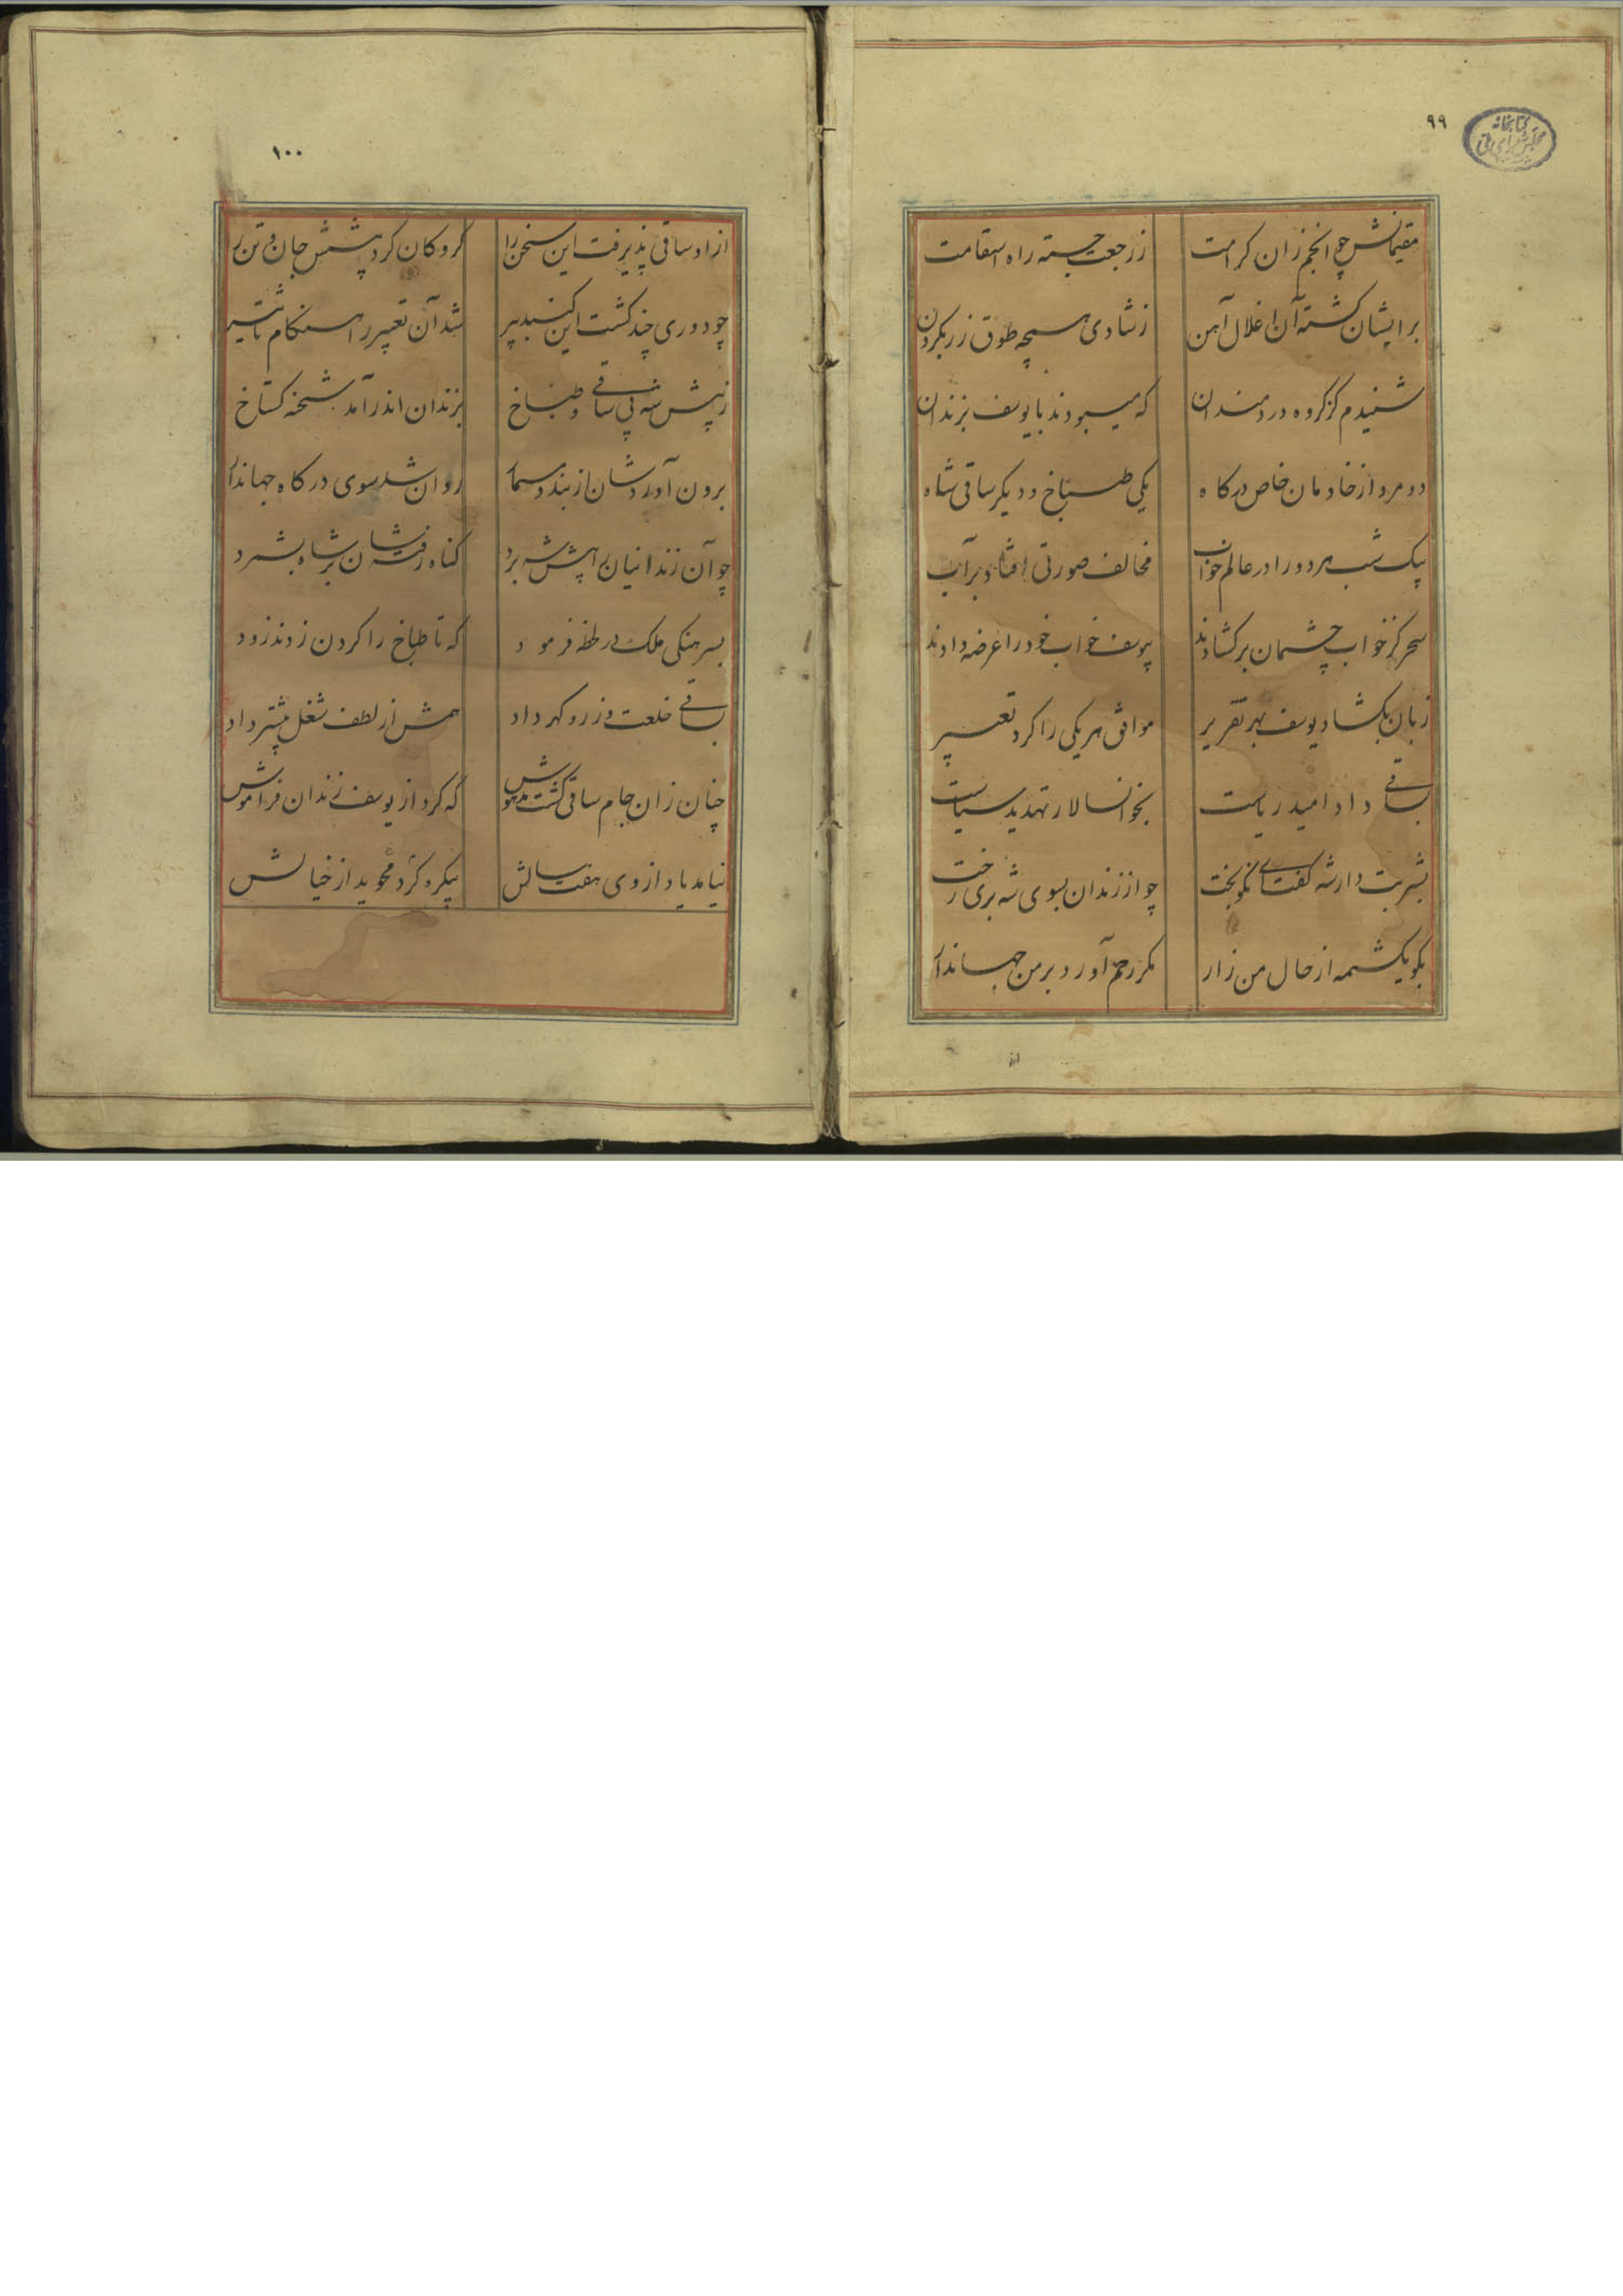 ۹۹
کتابخانه مجلس شورای ملی
مقیمانش چو انجم زان کرامت	ز رجعت جسته راه استقامت
بر ایشان کشته آن اغلال آهن	ز شادی همچه طوق زر بکردن
شنیدم کز کروه دردمندان	که میبودند با یوسف بزندان
دو مرد از خادمان خاص درکاه	یکی طباخ و دیکر ساقی شاه
یک شب هر دو را در عالم خواب	مخالف صورتی افتاد بر آب
سحر کز خواب چشمان برکشادند	بیوسف خواب خود را عرضه دادند
زبان بکشاد یوسف بهر تقریر	موافق هر یکی را کرد تعبیر
بساقی داد امید ریاست	بخوانسالار تهدید سیاست
بشربت دار شه کفت ای نکوبخت	چو از زندان بسوی شه بری رخت
بکو یکشمه از حال من زار	مکر رحم آورد بر من جهاندار
از
۱۰۰
از او ساقی پذیرفت این سخن را	کروکان کرد پیشش جان و تن را
چو دوری چند کشت این کنبد پیر	شد آن تعبیر را هنکام تاثیر
ز پیش شه پی ساقی و طباخ	بزندان اندر آمد شحنه کستاخ
برون آوردشان از بند و مسمار	روان شد سوی درکاه جهاندار
چو آن زندانیان را پیش شه برد	کناه رفته شان بر شاه بشمرد
بسرهنکی ملک در لحظه فرمود	که تا طباخ را کردن زدند زود
بساقی خلعت و زر و کهر داد	همش از لطف شغل پیشتر داد
چنان زان جام ساقی کشت مدهوش	که کرد از یوسف زندان فراموش
نیامد یاد از وی هفت سالش	بیکره کرد محو ید از خیالش